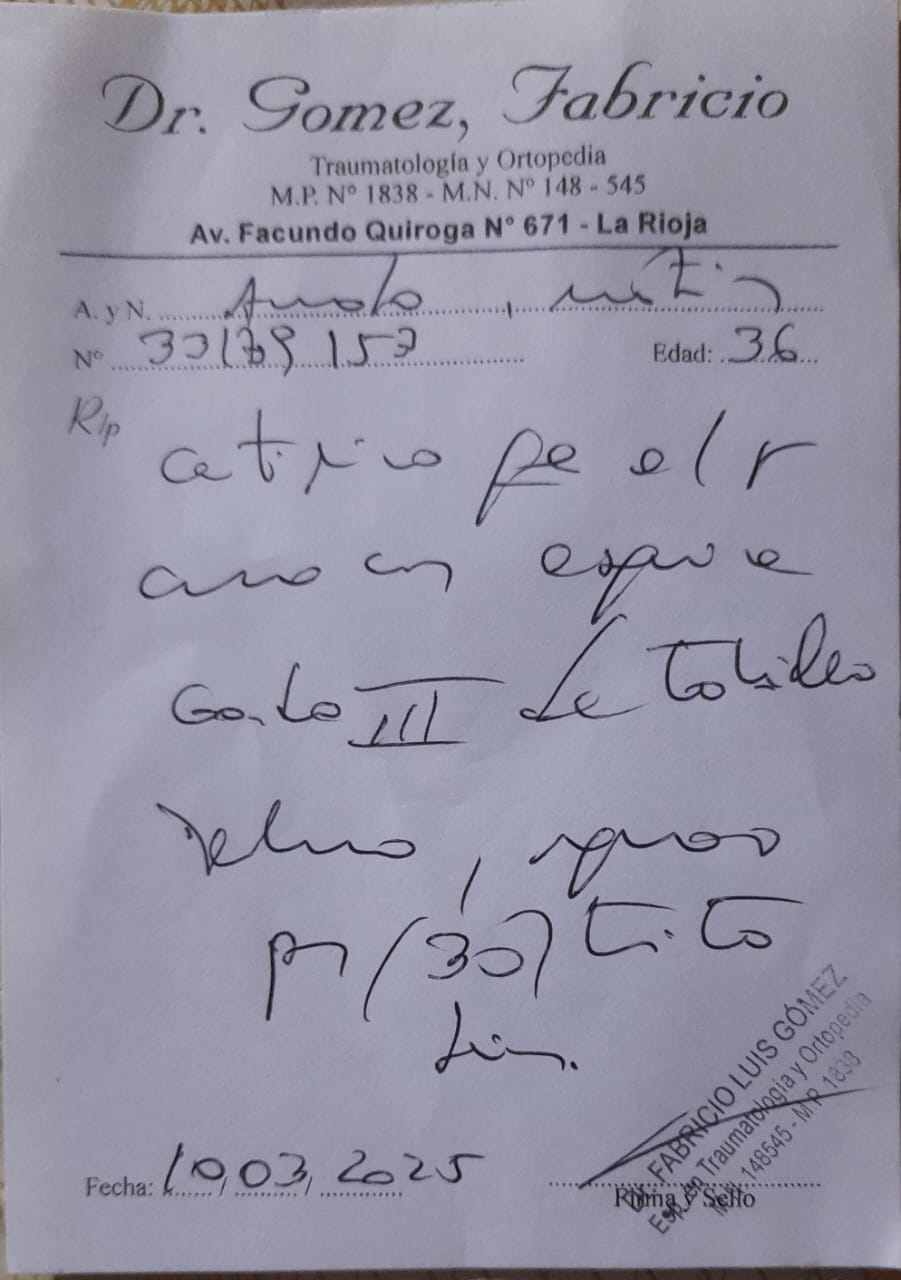 Dr. Gomez, Fabricio
Traumatología y Ortopedia
M.P. Nº 1838 - M.N. Nº 148 - 545
Av. Facundo Quiroga Nº 671 - La Rioja
A. y N.
Nº Edad: 36
R/p
certifico que el
esguince
Grado III de Tobillo
reposo
por (30) treinta
días.
Fecha: 10/03/2025
Firma y Sello
Dr. FABRICIO LUIS GÓMEZ
Esp. en Traumatología y Ortopedia
M.N. 148545 - M.P. 1838